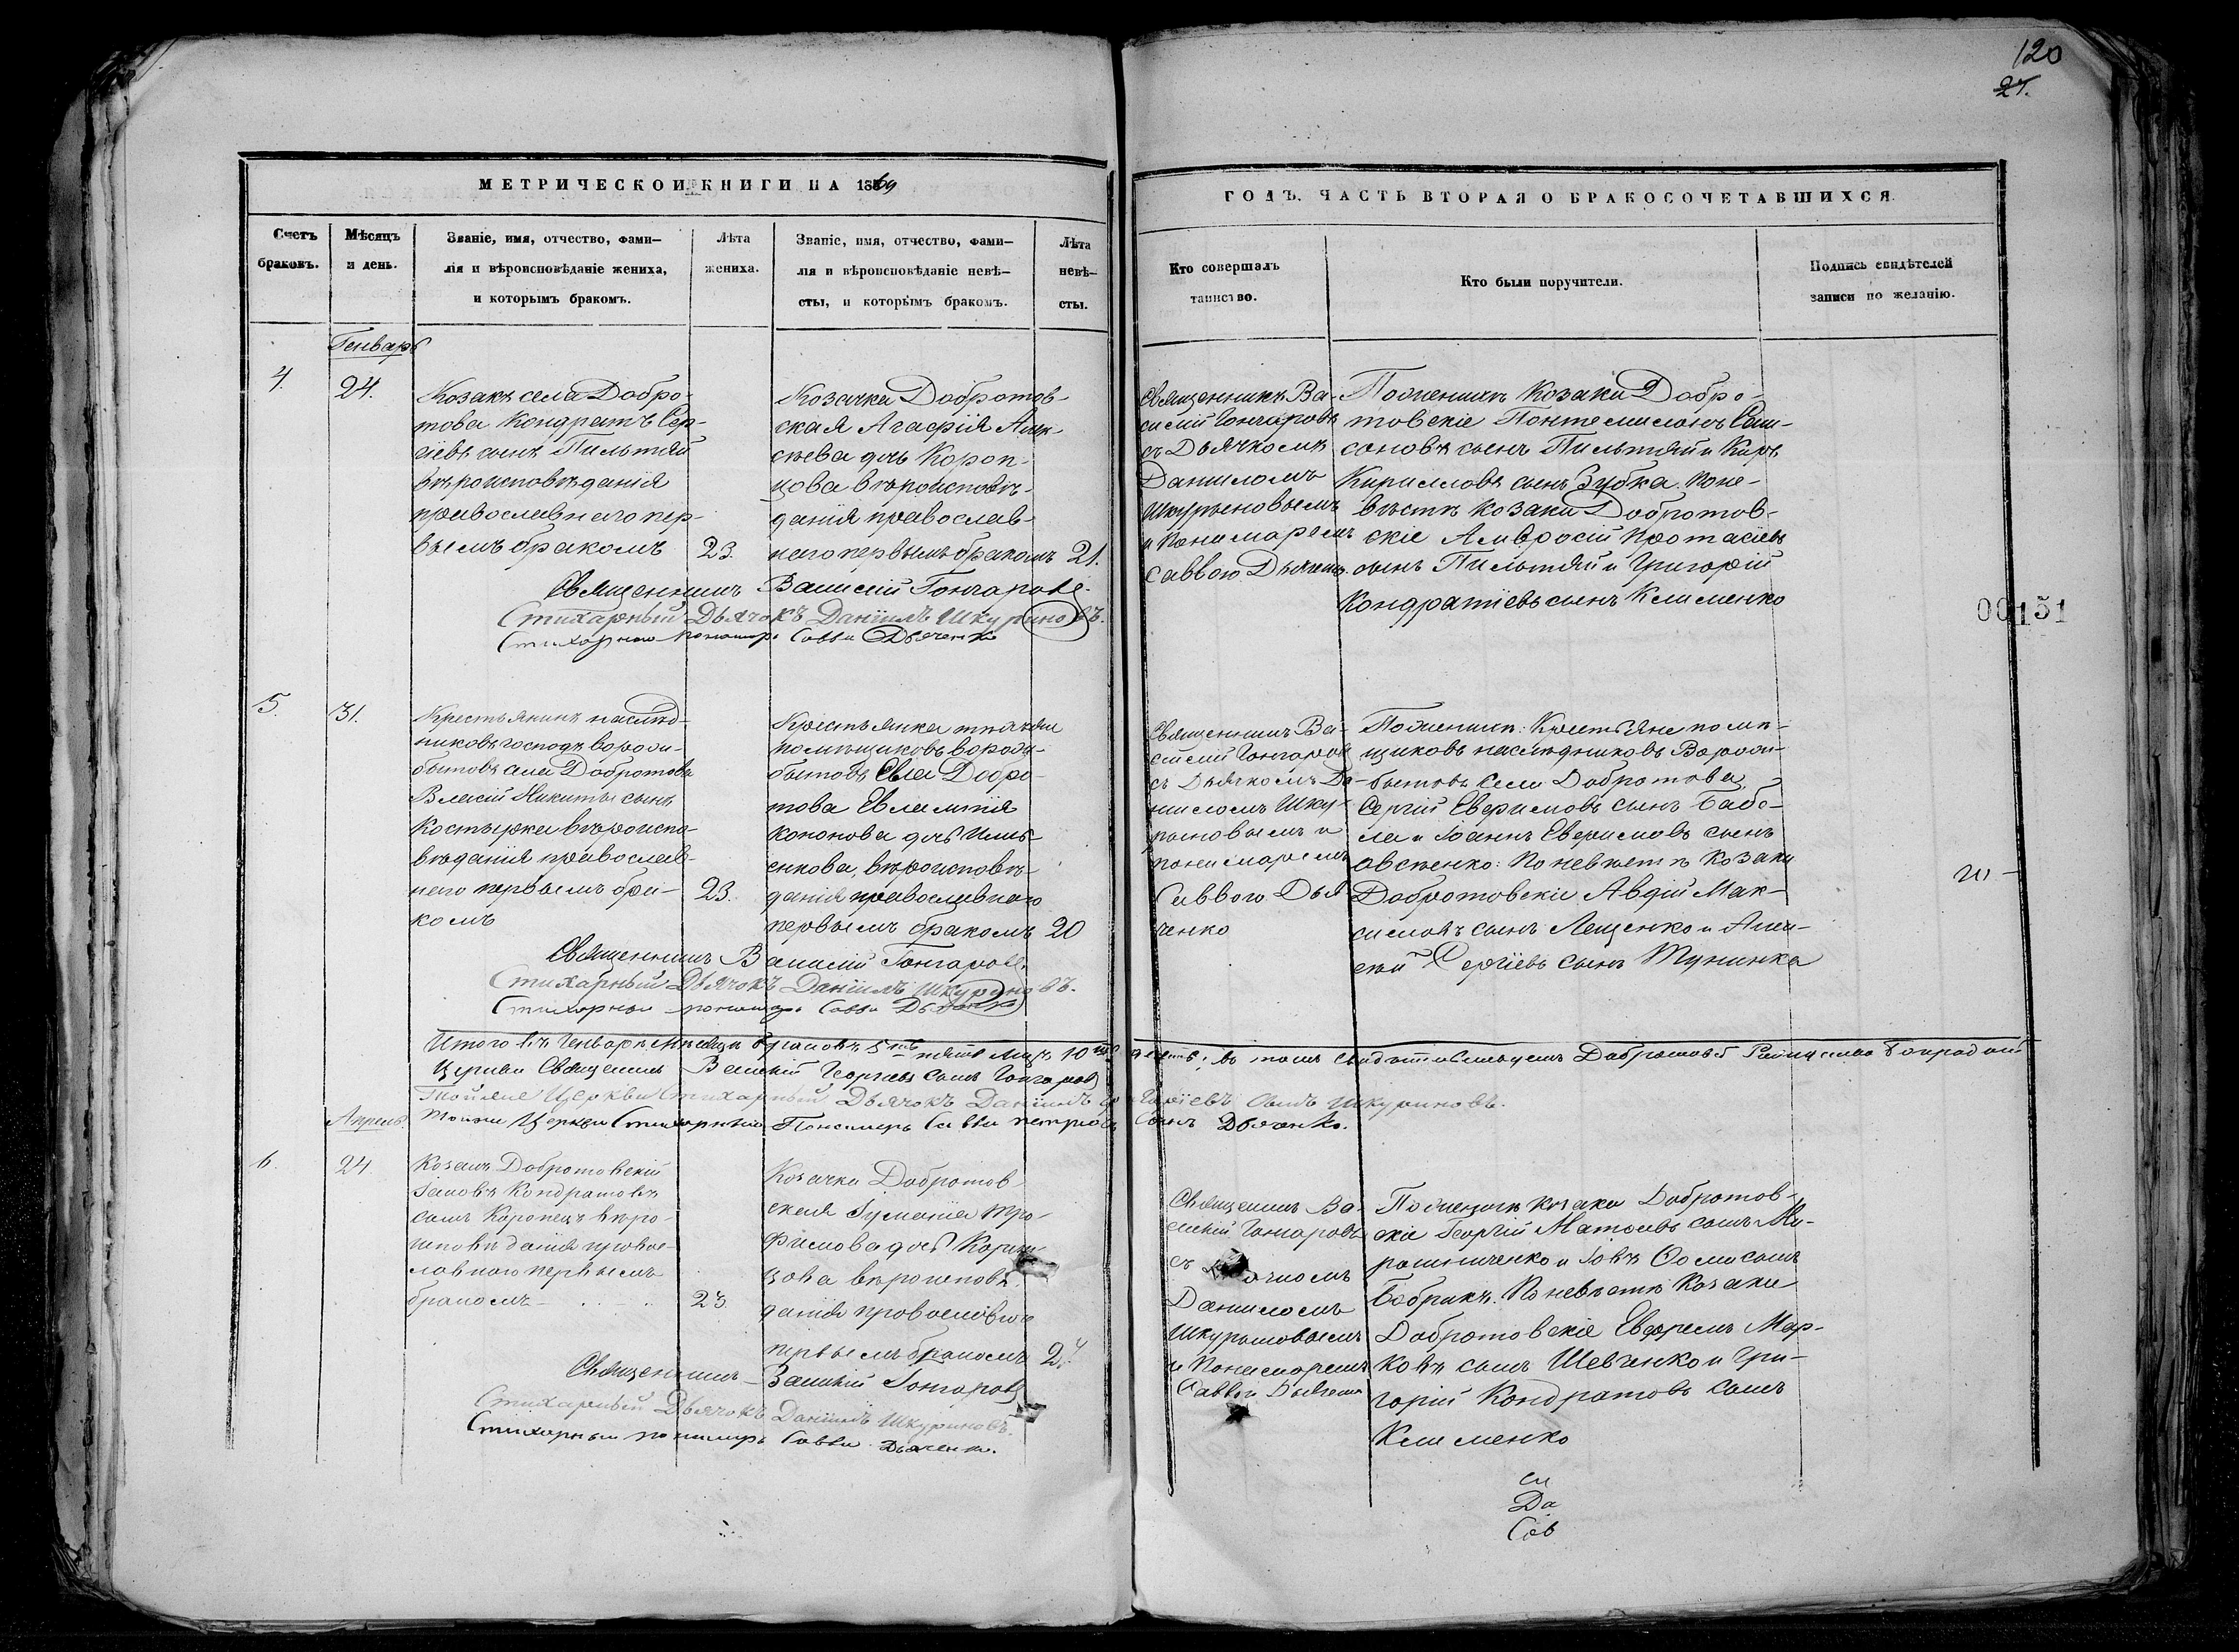 120
27.
МЕТРИЧЕСКОЙ КНИГИ НА 1869
ГОДЪ, ЧАСТЬ ВТОРАЯ О БРАКОСОЧЕТАВШИХСЯ.
Счетъ браковъ.
Мѣсяцъ и день.
Званіе, имя, отчество, фами-
лія и вѣроисповѣданіе жениха,
и которымъ бракомъ.
Лѣта
жениха.
Званіе, имя, отчество, фами-
лія и вѣроисповѣданіе невѣ-
сты, и которымъ бракомъ.
Лѣта
невѣ-
сты.
Кто совершалъ
таинство.
Кто были поручители.
Подпись свидѣтелей
записи по желанію.
Генварь
4.
24.
Козакъ села Добро-
това Кондратъ Сер-
гіевъ сынъ Пильтяй
вѣроисповѣданія
православнаго пер-
вымъ бракомъ
23.
Козачка Добротов-
ская Агафія Алек-
сѣева дочь Короп-
цова вѣроисповѣ-
данія православ-
наго первымъ бракомъ
21.
Священникъ Ва-
силій Гончаровъ
съ Дьячкомъ
Даниломъ
Шкуриновымъ
и Пономаремъ
Саввою Дяченко.
По женихѣ Козаки Добро-
товскіе Пантелимонъ Сам-
соновъ сынъ Пильтяй и Киръ
Кирилловъ сынъ Зубка. По не-
вѣстѣ Козаки Добротов-
скіе Амвросій Протасіевъ
сынъ Пильтяй и Григорій
Кондратіевъ сынъ Клименко
Священникъ Василій Гончаровъ.
Стихарный Дьячокъ Даніилъ Шкуриновъ.
Стихарный пономарь Савва Дяченко
00151
5.
31.
Крестьянинъ наслѣд-
никовъ господъ Ворожи-
бытовъ села Добротова
Власій Никиты сынъ
Костырка вѣроиспо-
вѣданія православ-
наго первымъ бра-
комъ
23.
Крестьянка тѣхже
помѣщиковъ Ворожи-
бытовъ села Добро-
това Евлампія
Кононова дочь
вѣроисповѣ-
данія православнаго
первымъ бракомъ
20
Священникъ Ва-
силій Гончаровъ
съ Дьячкомъ Да-
ниломъ Шку-
риновымъ и
пономаремъ
Саввою Дья-
ченко
По женихѣ: Крестьяне помѣ-
щиковъ наслѣдниковъ Ворожи-
бытовъ села Добротова
Сергій Евфимовъ сынъ Бабе-
ла и Іоаннъ Евфимовъ сынъ
Овсѣенко: По невѣстѣ Козаки
Добротовскіе Авдій Мак-
симовъ сынъ Лещенко и Алек-
сѣй Сергіевъ сынъ Тунинка
Священникъ Василій Гончаровъ.
Стихарный Дьячокъ Даніилъ Шкуриновъ.
Стихарный пономарь Савва Дяченко
Итого въ Генварѣ Мѣсяцѣ браковъ 5ть пять
Церкви Священникъ Василій Георгіевъ сынъ Гончаровъ
Тойже Церкви Стихарный Дьячокъ Даніилъ Григоріевъ сынъ Шкуриновъ.
Тойже Церкви Стихарный Пономарь Савва Петровъ сынъ Дяченко.
Апрель.
6.
24
Козакъ Добротовскій
Іаковъ Кондратовъ
сынъ Коропецъ вѣро-
исповѣданія право-
славного первымъ
бракомъ
23.
Козачка Добротов-
ская Іуліанія Тро-
фимова дочь Короп-
цова вѣроисповѣ-
данія православного
первымъ бракомъ
24
Священникъ Ва-
силій Гончаровъ
съ
Даниломъ
Шкуриновымъ
и Пономаремъ
Саввою Дяченко
По женихѣ козаки Добротов-
скіе Георгій Матвѣевъ сынъ Ми-
рошниченко и Іовъ Ѳомы сынъ
Бобрикъ. По невѣстѣ Козаки
Добротовскіе Ефремъ Мар-
ковъ сынъ Шевченко и Гри-
горій Кондратовъ сынъ
Клименко
Священникъ Василій Гончаровъ
Стихарный Дьячокъ Даніилъ Шкуриновъ.
Стихарный пономарь Савва Дяченко.
Да
Сав